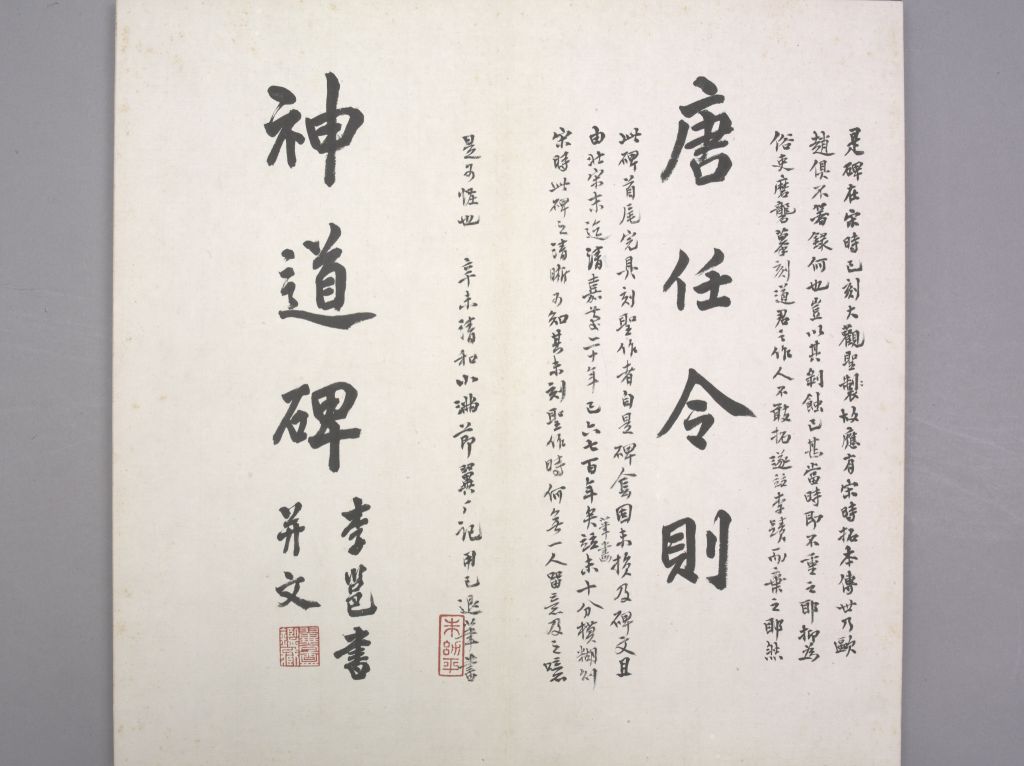 是碑在宋時已刻大觀聖製故應有宋時拓本傳世乃歐
趙俱不著錄何也豈以其剝蝕已甚當時即不重之耶抑為
俗吏磨礱摹刻道君之作人不敢拓遂並李蹟而棄之耶然
唐任令則
此碑首尾完具刻聖作者自是碑會因未損及碑文且
由北宋末迄清嘉慶二十年已六七百年矣該未十分模糊則
筆畫
宋時此碑之清晰可知其未刻聖作時何無一人留意及之噫
是可怪也 辛未清和小滿節翼厂記用已退筆書
神道碑
李邕書
并文
朱翼盦